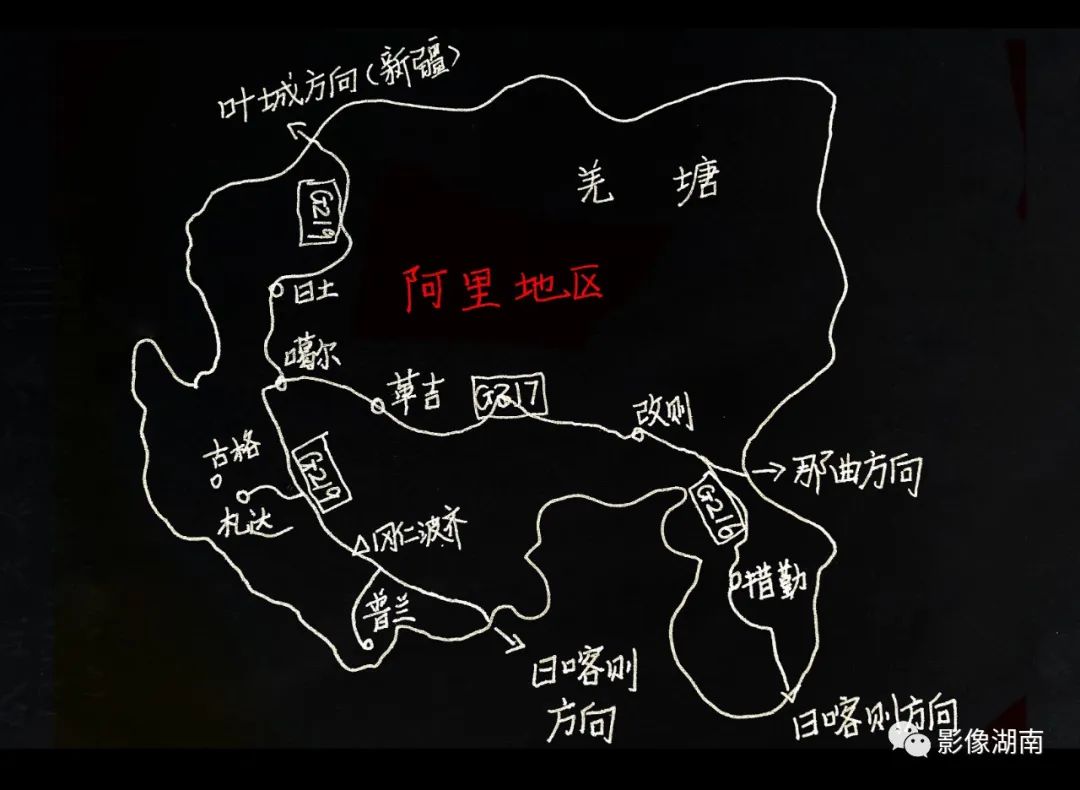 叶城方向(新疆)
羌塘
G219
阿里地区
日土
噶尔
革吉
G317
改则
古格
G219
札达
那曲方向
G216
冈仁波齐
措勤
普兰
日喀则
方向
日喀则方向
影像湖南